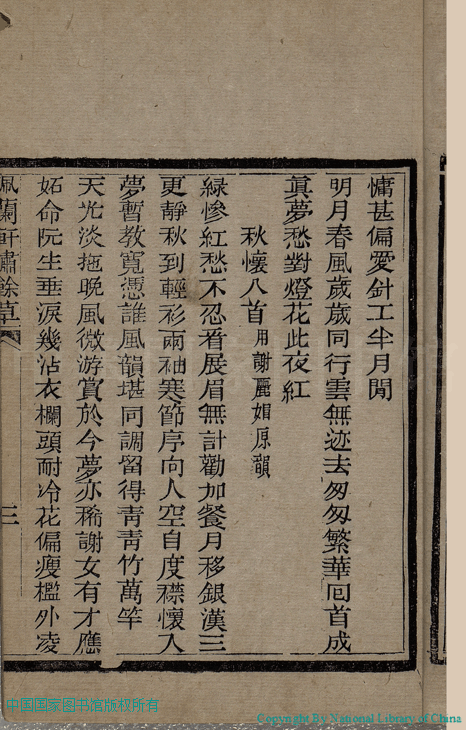 慵甚偏愛針工半月閒
明月春風歲歲同行雲無迹去匆匆繁華回首成
眞夢愁對燈花此夜紅
秋懷八首用謝麗娟原韻
綠慘紅愁不忍看展眉無計勸加餐月移銀漢三
更靜秋到輕衫兩袖寒節序向人空自度襟懷入
夢暫敎寬憑誰風韻堪同調畱得靑靑竹萬竿
天光淡拖晚風微游賞於今夢亦稀謝女有才應
妬命阮生垂淚幾沾衣欄頭耐冷花偏瘦檻外凌
佩蘭軒繡餘草
三
中国国家图书馆版权所有
Copyright By National Library of China